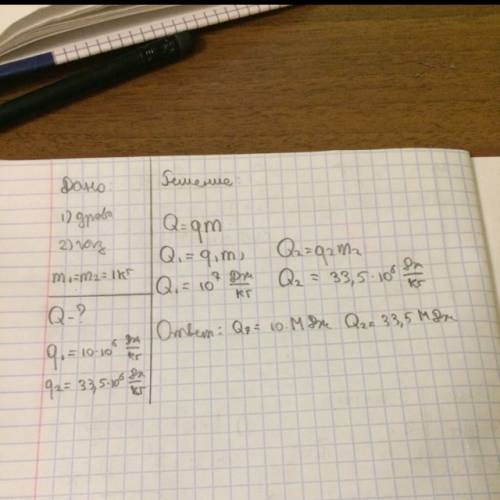 Дано:
1) дрова
2) газ
m₁=m₂=1кг
Q-?
q₁=10·10⁶ Дж/кг
q₂=33,5·10⁶ Дж/кг
Решение:
Q=qm
Q₁=q₁m₁ Q₂=q₂m₂
Q₁=10⁷ Дж/кг Q₂=33,5·10⁶ Дж/кг
Ответ: Q₁=10·МДж Q₂=33,5МДж